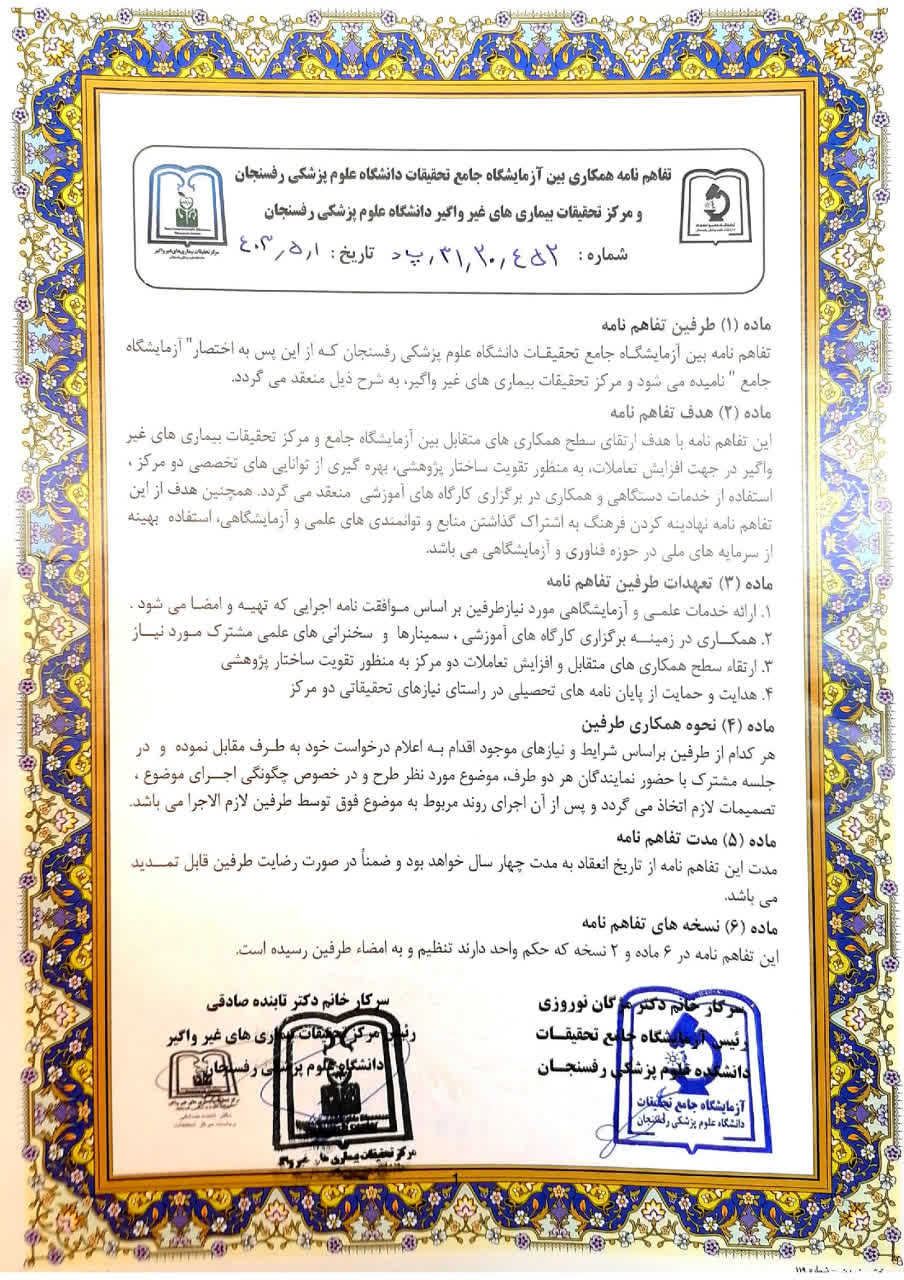 تفاهم نامه همکاری بین آزمایشگاه جامع تحقیقات دانشگاه علوم پزشکی رفسنجان
و مرکز تحقیقات بیماری های غیر واگیر دانشگاه علوم پزشکی رفسنجان
شماره : ۳۱٫۲۰٫۴۵۲٫پ د تاریخ : ۴۰۳٫۵٫۱
مرکز تحقیقات بیماری های غیر واگیر
ماده (۱) طرفین تفاهم نامه
تفاهم نامه بین آزمایشگاه جامع تحقیقات دانشگاه علوم پزشکی رفسنجان که از این پس به اختصار" آزمایشگاه
جامع " نامیده می شود و مرکز تحقیقات بیماری های غیر واگیر، به شرح ذیل منعقد می گردد.
ماده (۲) هدف تفاهم نامه
این تفاهم نامه با هدف ارتقای سطح همکاری های متقابل بین آزمایشگاه جامع و مرکز تحقیقات بیماری های غیر
واگیر در جهت افزایش تعاملات، به منظور تقویت ساختار پژوهشی، بهره گیری از توانایی های تخصصی دو مرکز ،
استفاده از خدمات دستگاهی و همکاری در برگزاری کارگاه های آموزشی منعقد می گردد. همچنین هدف از این
تفاهم نامه نهادینه کردن فرهنگ به اشتراک گذاشتن منابع و توانمندی های علمی و آزمایشگاهی، استفاده بهینه
از سرمایه های ملی در حوزه فناوری و آزمایشگاهی می باشد.
ماده (۳) تعهدات طرفین تفاهم نامه
۱. ارائه خدمات علمی و آزمایشگاهی مورد نیازطرفین بر اساس موافقت نامه اجرایی که تهیه و امضا می شود .
۲. همکاری در زمینه برگزاری کارگاه های آموزشی ، سمینارها و سخنرانی های علمی مشترک مورد نیاز
۳. ارتقاء سطح همکاری های متقابل و افزایش تعاملات دو مرکز به منظور تقویت ساختار پژوهشی
۴. هدایت و حمایت از پایان نامه های تحصیلی در راستای نیازهای تحقیقاتی دو مرکز
ماده (۴) نحوه همکاری طرفین
هر کدام از طرفین براساس شرایط و نیازهای موجود اقدام به اعلام درخواست خود به طرف مقابل نموده و در
جلسه مشترک با حضور نمایندگان هر دو طرف، موضوع مورد نظر طرح و در خصوص چگونگی اجرای موضوع ،
تصمیمات لازم اتخاذ می گردد و پس از آن اجرای روند مربوط به موضوع فوق توسط طرفین لازم الاجرا می باشد.
ماده (۵) مدت تفاهم نامه
مدت این تفاهم نامه از تاریخ انعقاد به مدت چهار سال خواهد بود و ضمناً در صورت رضایت طرفین قابل تمدید
می باشد.
ماده (۶) نسخه های تفاهم نامه
این تفاهم نامه در ۶ ماده و ۲ نسخه که حکم واحد دارند تنظیم و به امضاء طرفین رسیده است.
سرکار خانم دکتر مژگان نوروزی
رئیس آزمایشگاه جامع تحقیقات
دانشکده علوم پزشکی رفسنجان
آزمایشگاه جامع تحقیقات
دانشگاه علوم پزشکی رفسنجان
سرکار خانم دکتر تابنده صادقی
رئیس مرکز تحقیقات بیماری های غیر واگیر
دانشگاه علوم پزشکی رفسنجان
مرکز تحقیقات بیماری های غیر واگیر
1
شماره ۱۱۹